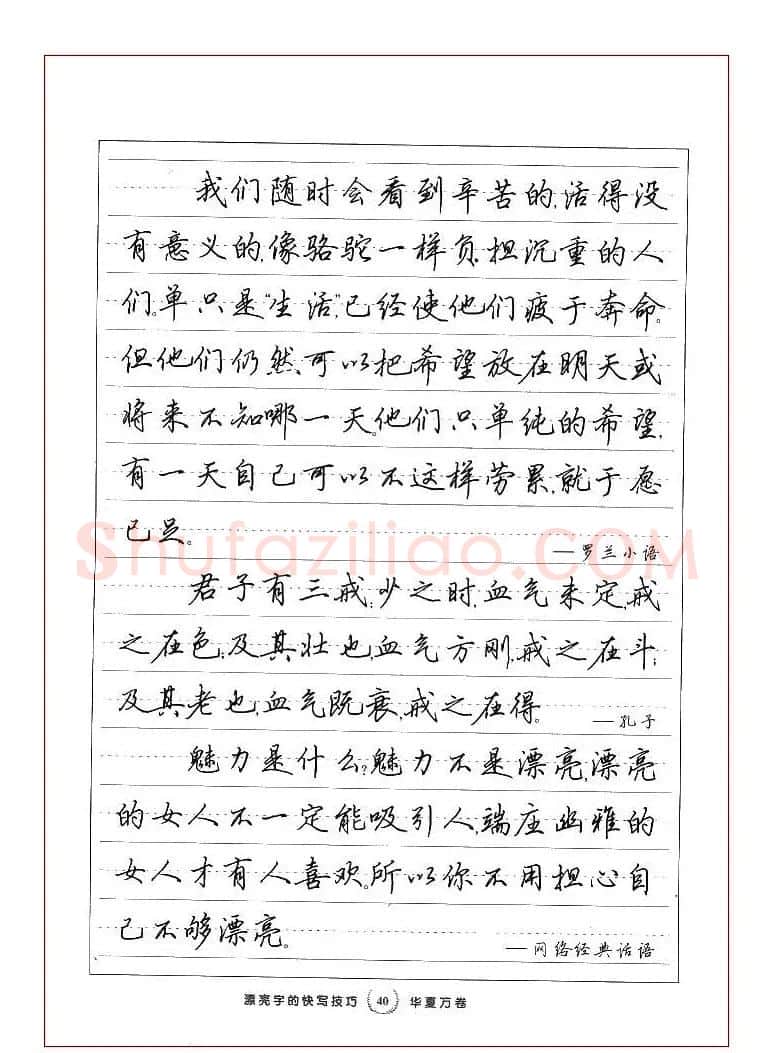 我们随时会看到辛苦的,活得没
有意义的,像骆驼一样负担沉重的人
们。单只是“生活”,已经使他们疲于奔命。
但他们仍然可以把希望放在明天或
将来不知哪一天。他们只单纯的希望,
有一天自己可以不这样劳累,就于愿
已足。
—罗兰小语
君子有三戒:少之时,血气未定,戒
之在色;及其壮也,血气方刚,戒之在斗;
及其老也,血气既衰,戒之在得。
—孔子
魅力是什么?魅力不是漂亮,漂亮
的女人不一定能吸引人,端座幽雅的
女人才有人喜欢。所以你不用担心自
己不够漂亮。
—网络经典话语
漂亮字的快写技巧 40 华夏万卷
Shufaziliao.COM